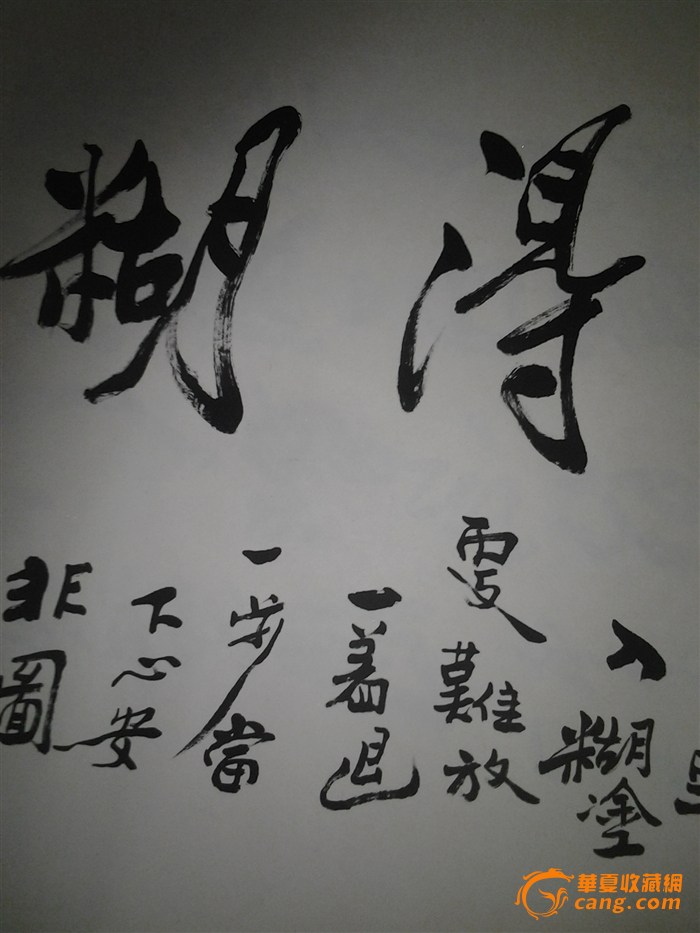 得糊
入糊塗
更難放
一着退
一步當
下心安
非圖
華夏收藏網
cang.com